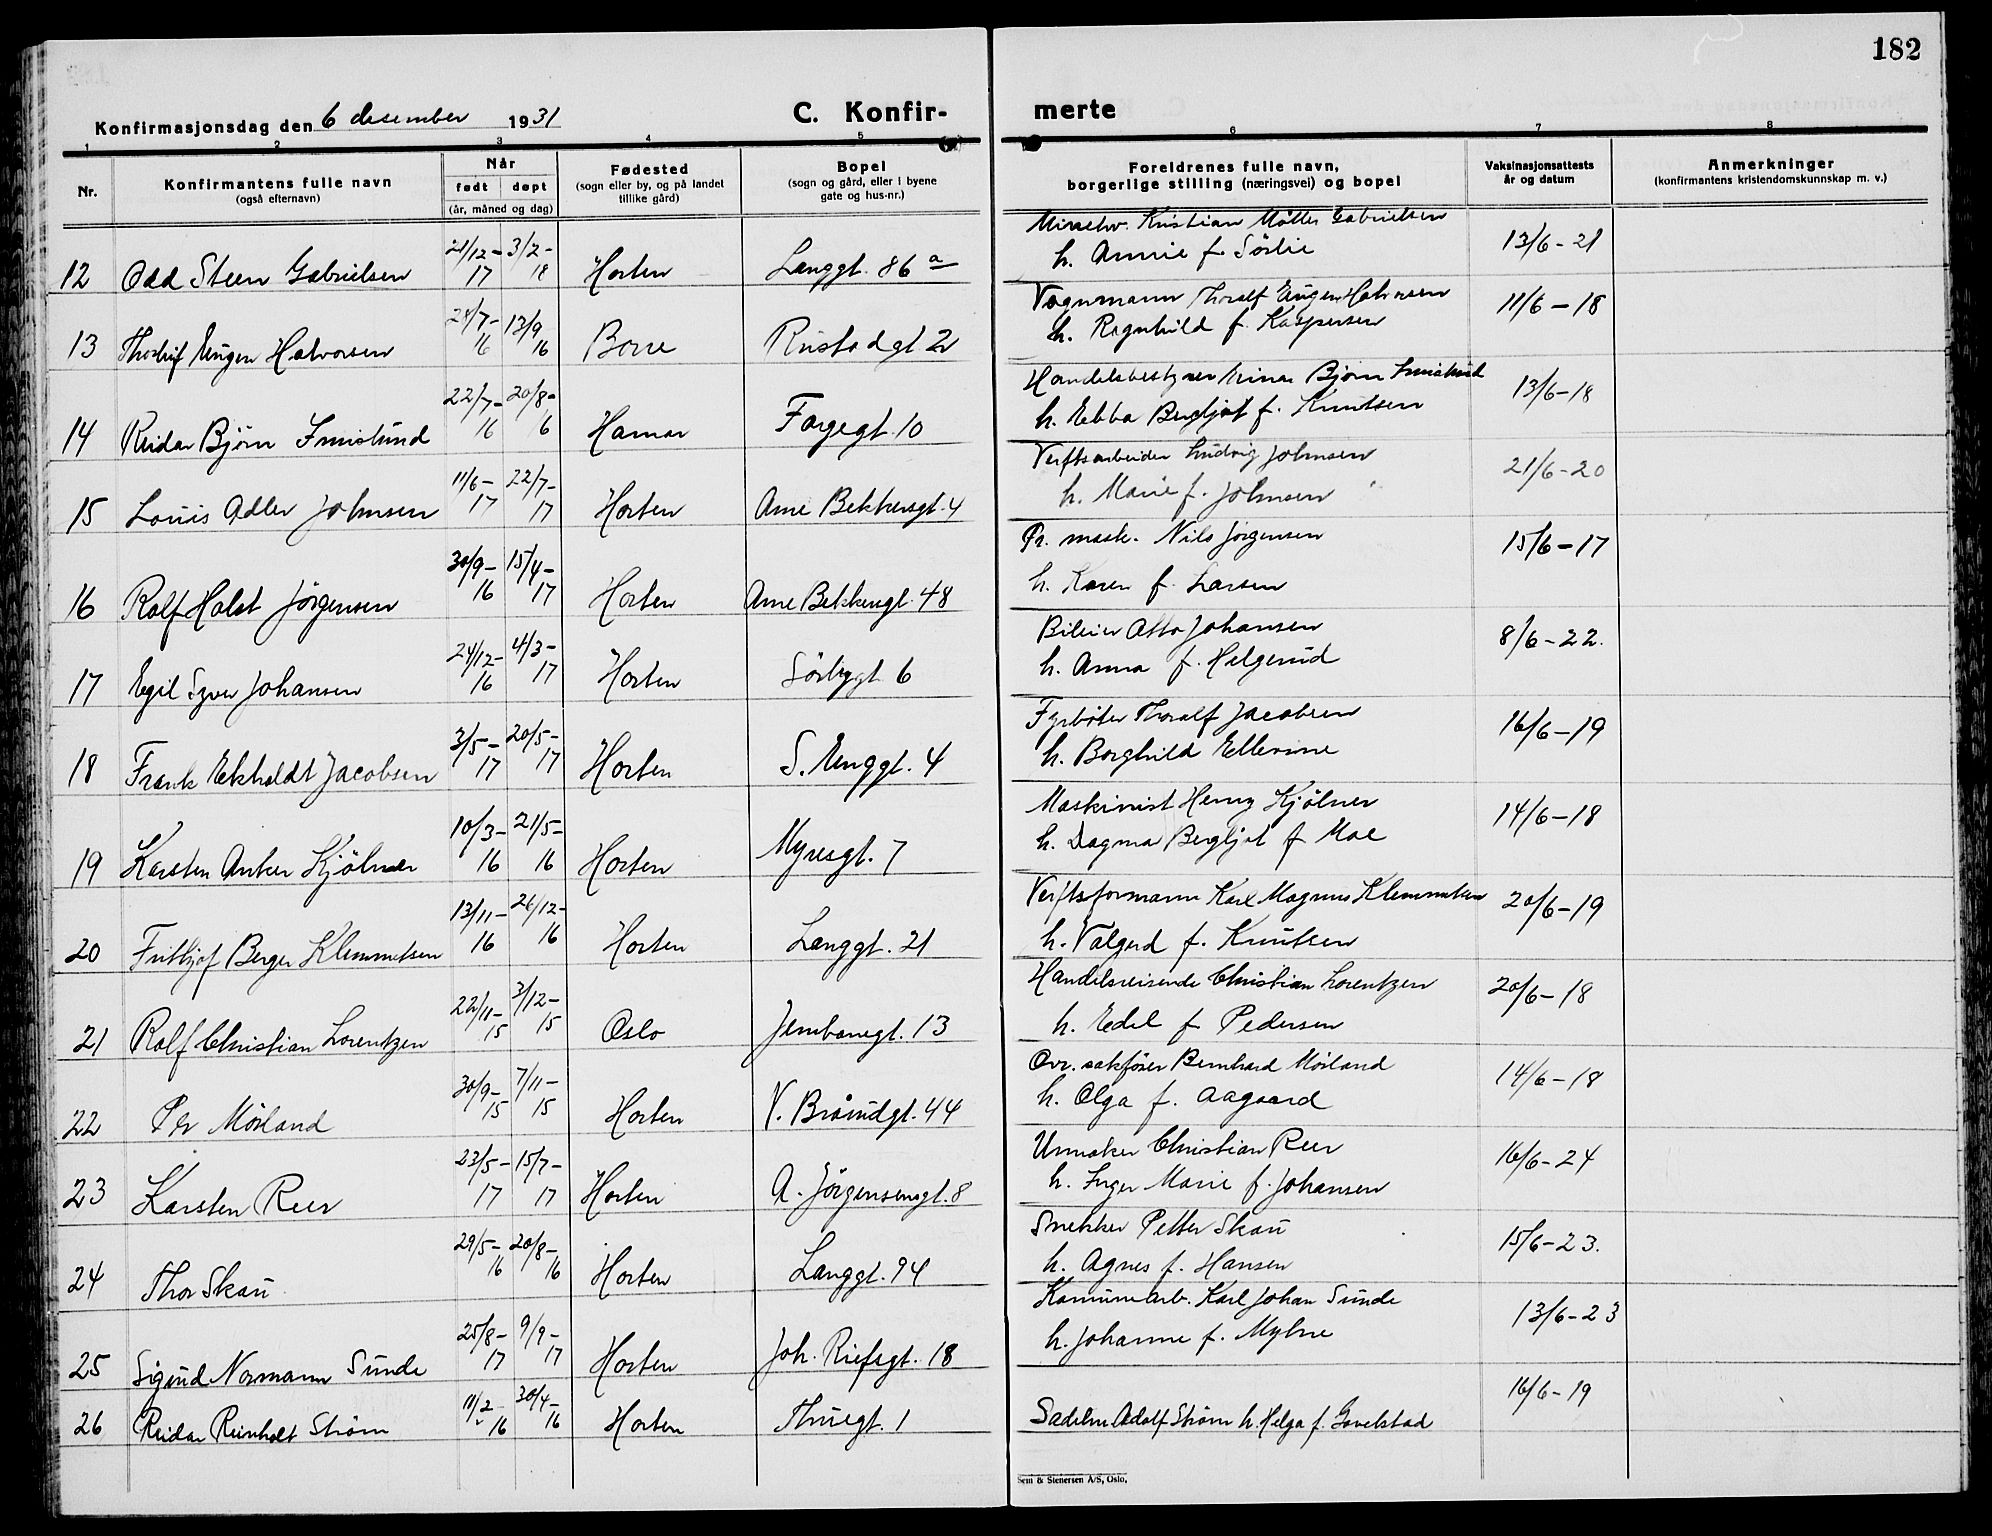 182
Konfirmasjonsdag den 6 desember 1931
C. Konfir- merte
1 2 3 4 5 6 7 8
Nr.
Konfirmantens fulle navn
(også efternavn)
Når
født døpt
(år, måned og dag)
Fødested
(sogn eller by, og på landet
tillike gård)
Bopel
(sogn og gård, eller i byene
gate og hus-nr.)
Foreldrenes fulle navn,
borgerlige stilling (næringsvei) og bopel
Vaksinasjonsattests
år og datum
Anmerkninger
(konfirmantens kristendomskunnskap m. v.)
12 Odd Steen Gabrielsen 21/12-17 3/2-18 Horten Langgt. 86a
Kristian Møller Gabrielsen
h. Annie f. Sörlie 13/6-21
13 Eugen Halvorsen 24/7-16 13/9 16 Borre Rustadgt 2
Vognmann Thoralf Eugen Halvorsen
h. Ragnhild f. Kaspersen 11/6-18
14 Reidar Bjørn 22/7-16 20/8-6 Hamar Fargegt. 10
Handelsbestyrer Einar Bjørn
h. Ebba Bergljot f. Knutsen 13/6-18
15 Louis Adler Johnsen 11/6-17 22/7-17 Horten Arne Bekkersgt. 4
Verftsarbeider Ludvig Johnsen
h. Marie f. Johnsen 21/6-20
16 Rolf Holst Jörgensen 30/9-16 15/4-17 Horten Arne Bekkengt. 48
Pr. mask. Nils Jörgensen
h. Karen f. Larsen 15/6-17
17 Egil Johansen 24/12-16 4/3-17 Horten Sörbygt 6
Bileier Otto Johansen
h. Anna f. Helgerud 8/6-22.
18 Frank Ekholdt Jacobsen 3/5-17 20/5-17 Horten S. Enggt. 4
Fyrbøter Thoralf Jacobsen
h. Borghild Ellevine 16/6-19
19 Karsten Anker Kjölner 10/3-16 21/5-16 Horten Myresgt. 7
Maskinist Henry Kjölner
h. Dagmar Bergljot f Moe 14/6-18
20 Frithjof Berger Klemmetsen 13/11-16 26/12-16 Horten Langgt. 21
Verftsformann Karl Magnus Klemmetsen
h. Valgerd f. Knutsen 20/6-19
21 Rolf Christian Lorentzen 22/11-15 3/12-15 Oslo Jernbanegt. 13
Handelsreisende Christian Lorentzen
h. Edel f Pedersen 20/6-18
22 Per Mörland 30/9-15 7/11-15 Horten V. Bråundgt. 44
Ovr. sakfører Bernhard Mörland
h. Olga f. Aagaard 14/6-18
23 Karsten Reer 23/5-17 15/7-17 Horten A. Jörgensensgt. 8
Urmaker Christian Reer
h. Inger Marie f. Johansen 16/6-24
24 Thor Skau 29/5-16 20/8-16 Horten Langgt. 94
Snekker Petter Skau
h. Agnes f. Hansen 15/6-23.
25 Sigurd Normann Sunde 25/8-17 9/9-17 Horten Joh. Riefsgt. 18
Karl Johan Sunde
h. Johanne f. Myhre 13/6-23
26 Reidar Reinholt Strøm 11/2-16 30/4-16 Horten Thuegt. 1
Sadelm. Adolf Strøm h. Helga f. Govelstad 16/6-19
Sem & Stenersen A/S, Oslo.